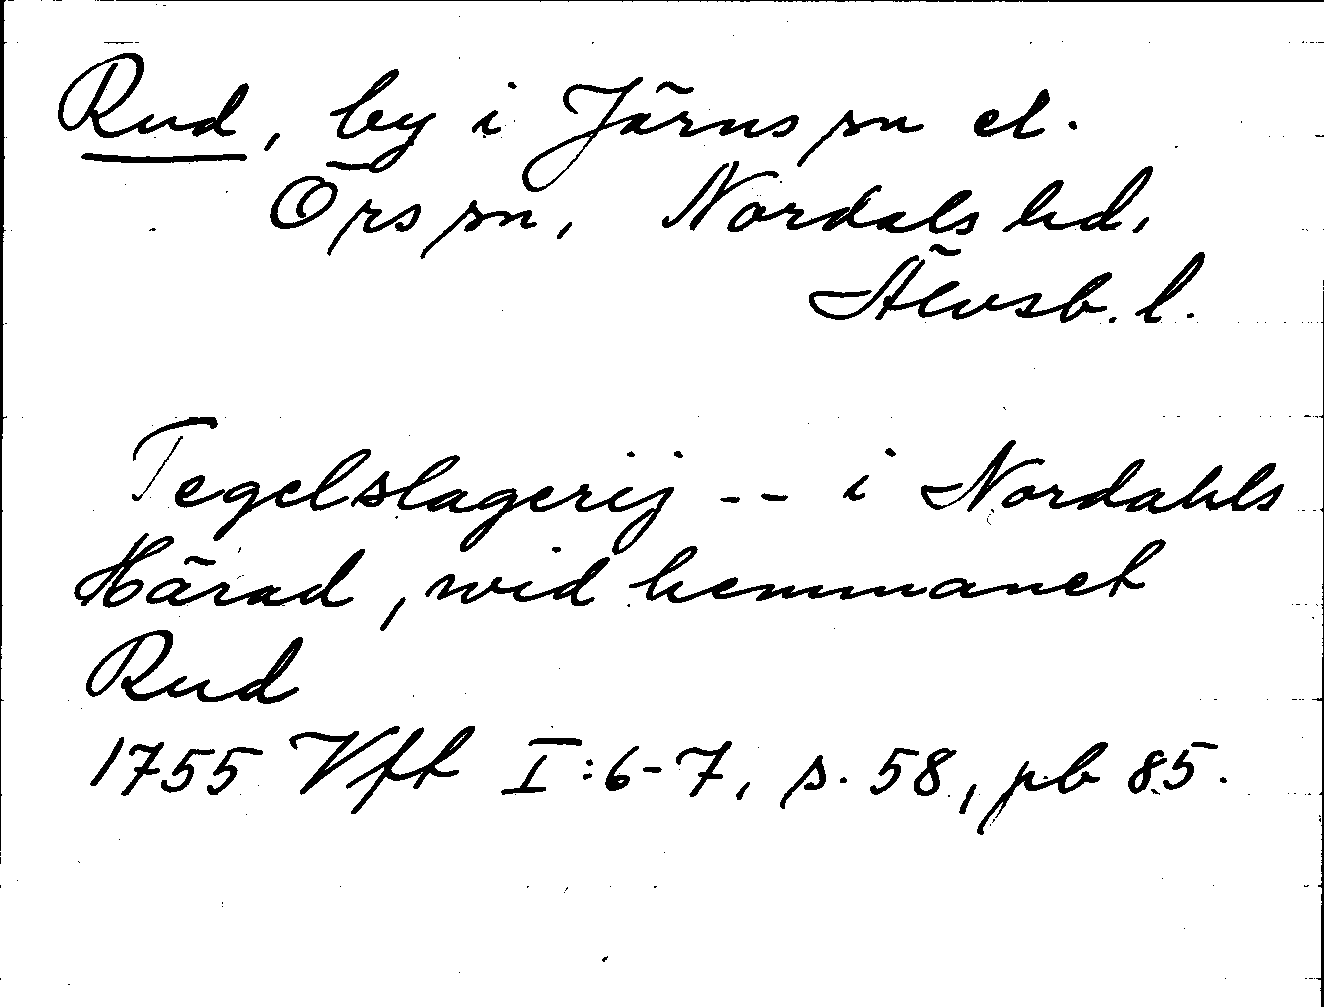 Rud, by i Järns sn el.
Örs sn, Nordals hd,
Älvsb. l.
Tegelslagerij -- i Nordahls
Härad, wid hemmanet
Rud
1755 Vft I:6-7, s. 58, pb 85.